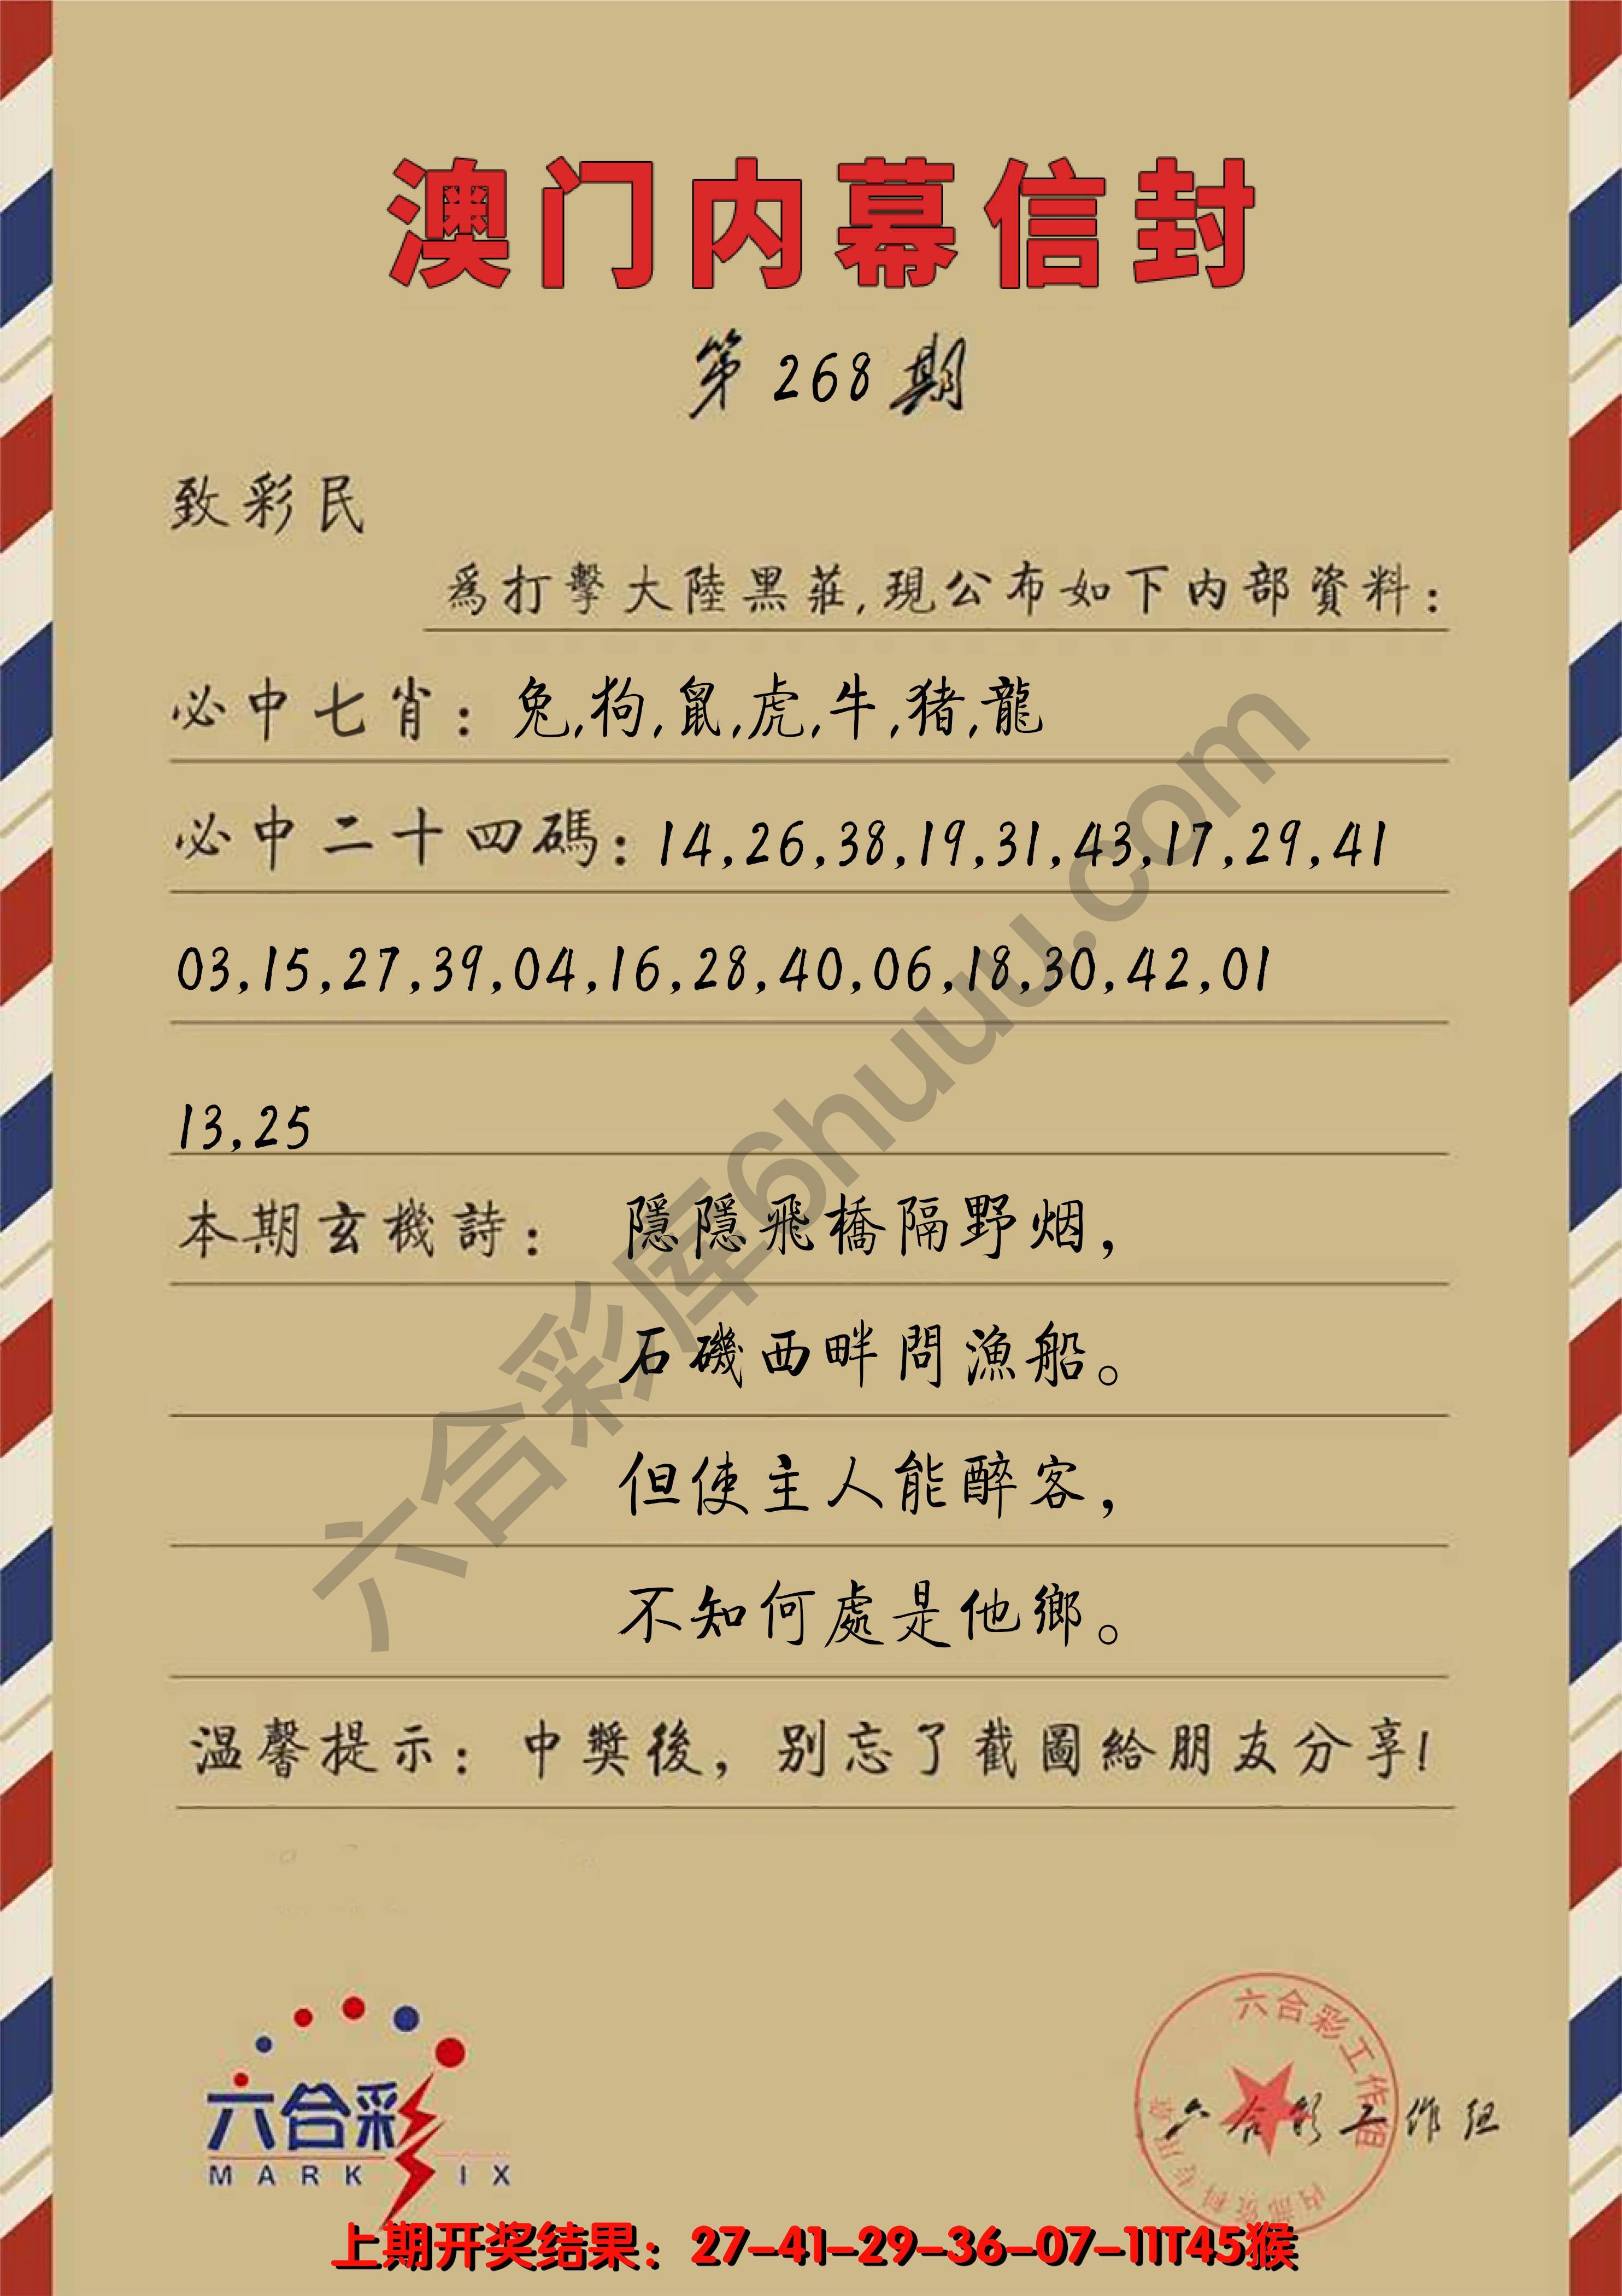 澳门内幕信封
第268期
致彩民
爲打擊大陸黑莊,現公布如下内部資料:
必中七肖: 兔,狗,鼠,虎,牛,猪,龍
必中二十四碼: 14,26,38,19,31,43,17,29,41
03,15,27,39,04,16,28,40,06,18,30,42,01
13,25
本期玄機詩: 隱隱飛橋隔野烟,
石磯西畔問漁船。
但使主人能醉客,
不知何處是他鄉。
温馨提示: 中獎後, 别忘了截圖給朋友分享!
六合彩库6huuu.com
六合彩
MARK IX
六合彩工作组
内部资料专用章
六合彩工作组
上期开奖结果: 27-41-29-36-07-11T45猴